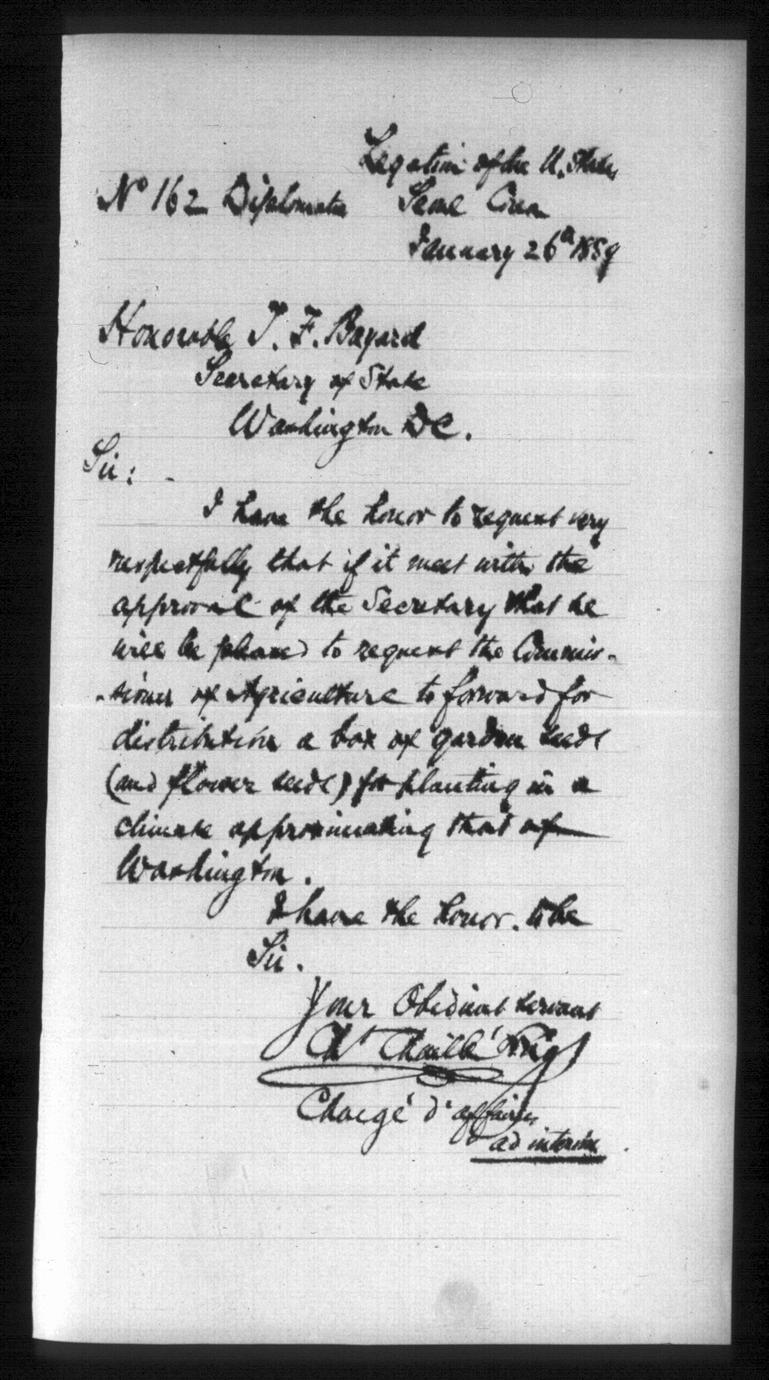 Legation of the U. States
No 162 Diplomatic Seoul Corea
January 26th 1889
Honorable T. F. Bayard
Secretary of State
Washington DC.
Sir: -
I have the honor to request very
respectfully that if it meet with the
approval of the Secretary that he
will be pleased to request the Commis-
-sioner of Agriculture to forward for
distribution a box of garden seeds
(and flower seeds) for planting in a
climate approximating that of
Washington.
I have the honor. to be
Sir.
Your Obedient servant
Ch. Chaillé Long
Chargé d'affaires
ad interim